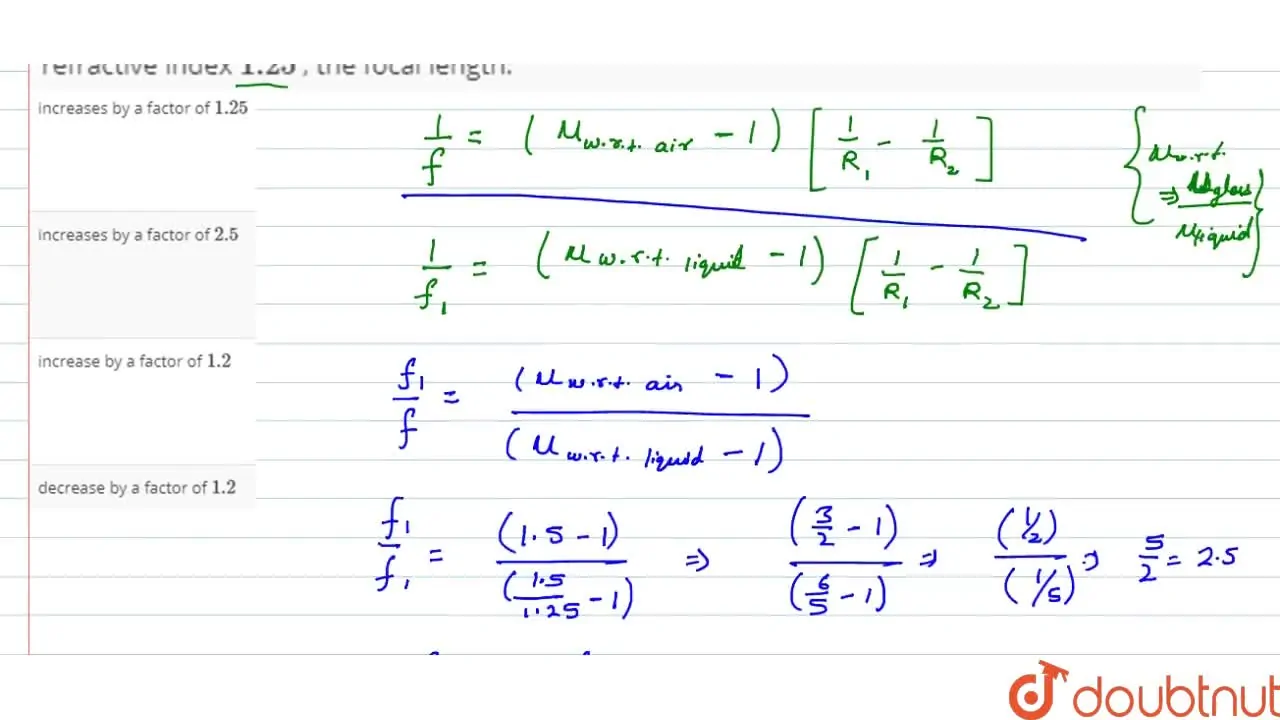 refractive index 1.25 , the focal length.
increases by a factor of 1.25
increases by a factor of 2.5
increase by a factor of 1.2
decrease by a factor of 1.2
1/f = (μ w.r.t. air - 1) [1/R₁ - 1/R₂]
μ w.r.t.
⇒ μglass/μliquid
1/f₁ = (μ w.r.t. liquid - 1) [1/R₁ - 1/R₂]
f₁/f = (μ w.r.t. air - 1)/(μ w.r.t. liquid - 1)
f₁/f₁ = (1.5 - 1)/(1.5/1.25 - 1) ⇒ (3/2 - 1)/(6/5 - 1) ⇒ (1/2)/(1/5) ⇒ 5/2 = 2.5
doubtnut